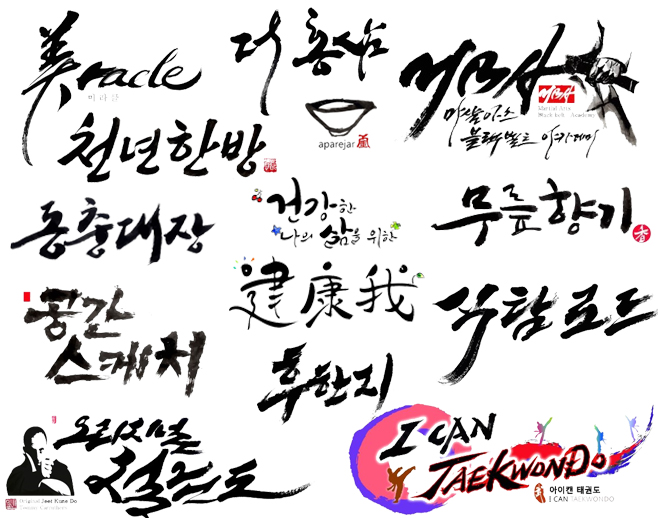 美racle
미라클
더 홍삼
aparejar
MBA
MBA
Martial Arts
Black belt Academy
마샬아츠
블랙벨트 아카데미
천년한방
동충대장
건강한
나의 삶을 위한
建康我
무릎향기
香
공간
스케치
직탐로드
후한지
오리지널
절권도
Original Jeet Kune Do
I CAN
TAEKWONDO
아이캔 태권도
I CAN TAEKWONDO